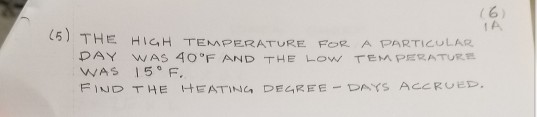 (6)
1A
(5) THE HIGH TEMPERATURE FOR A PARTICULAR
DAY WAS 40°F AND THE LOW TEMPERATURE
WAS 15° F.
FIND THE HEATING DEGREE-DAYS ACCRUED.